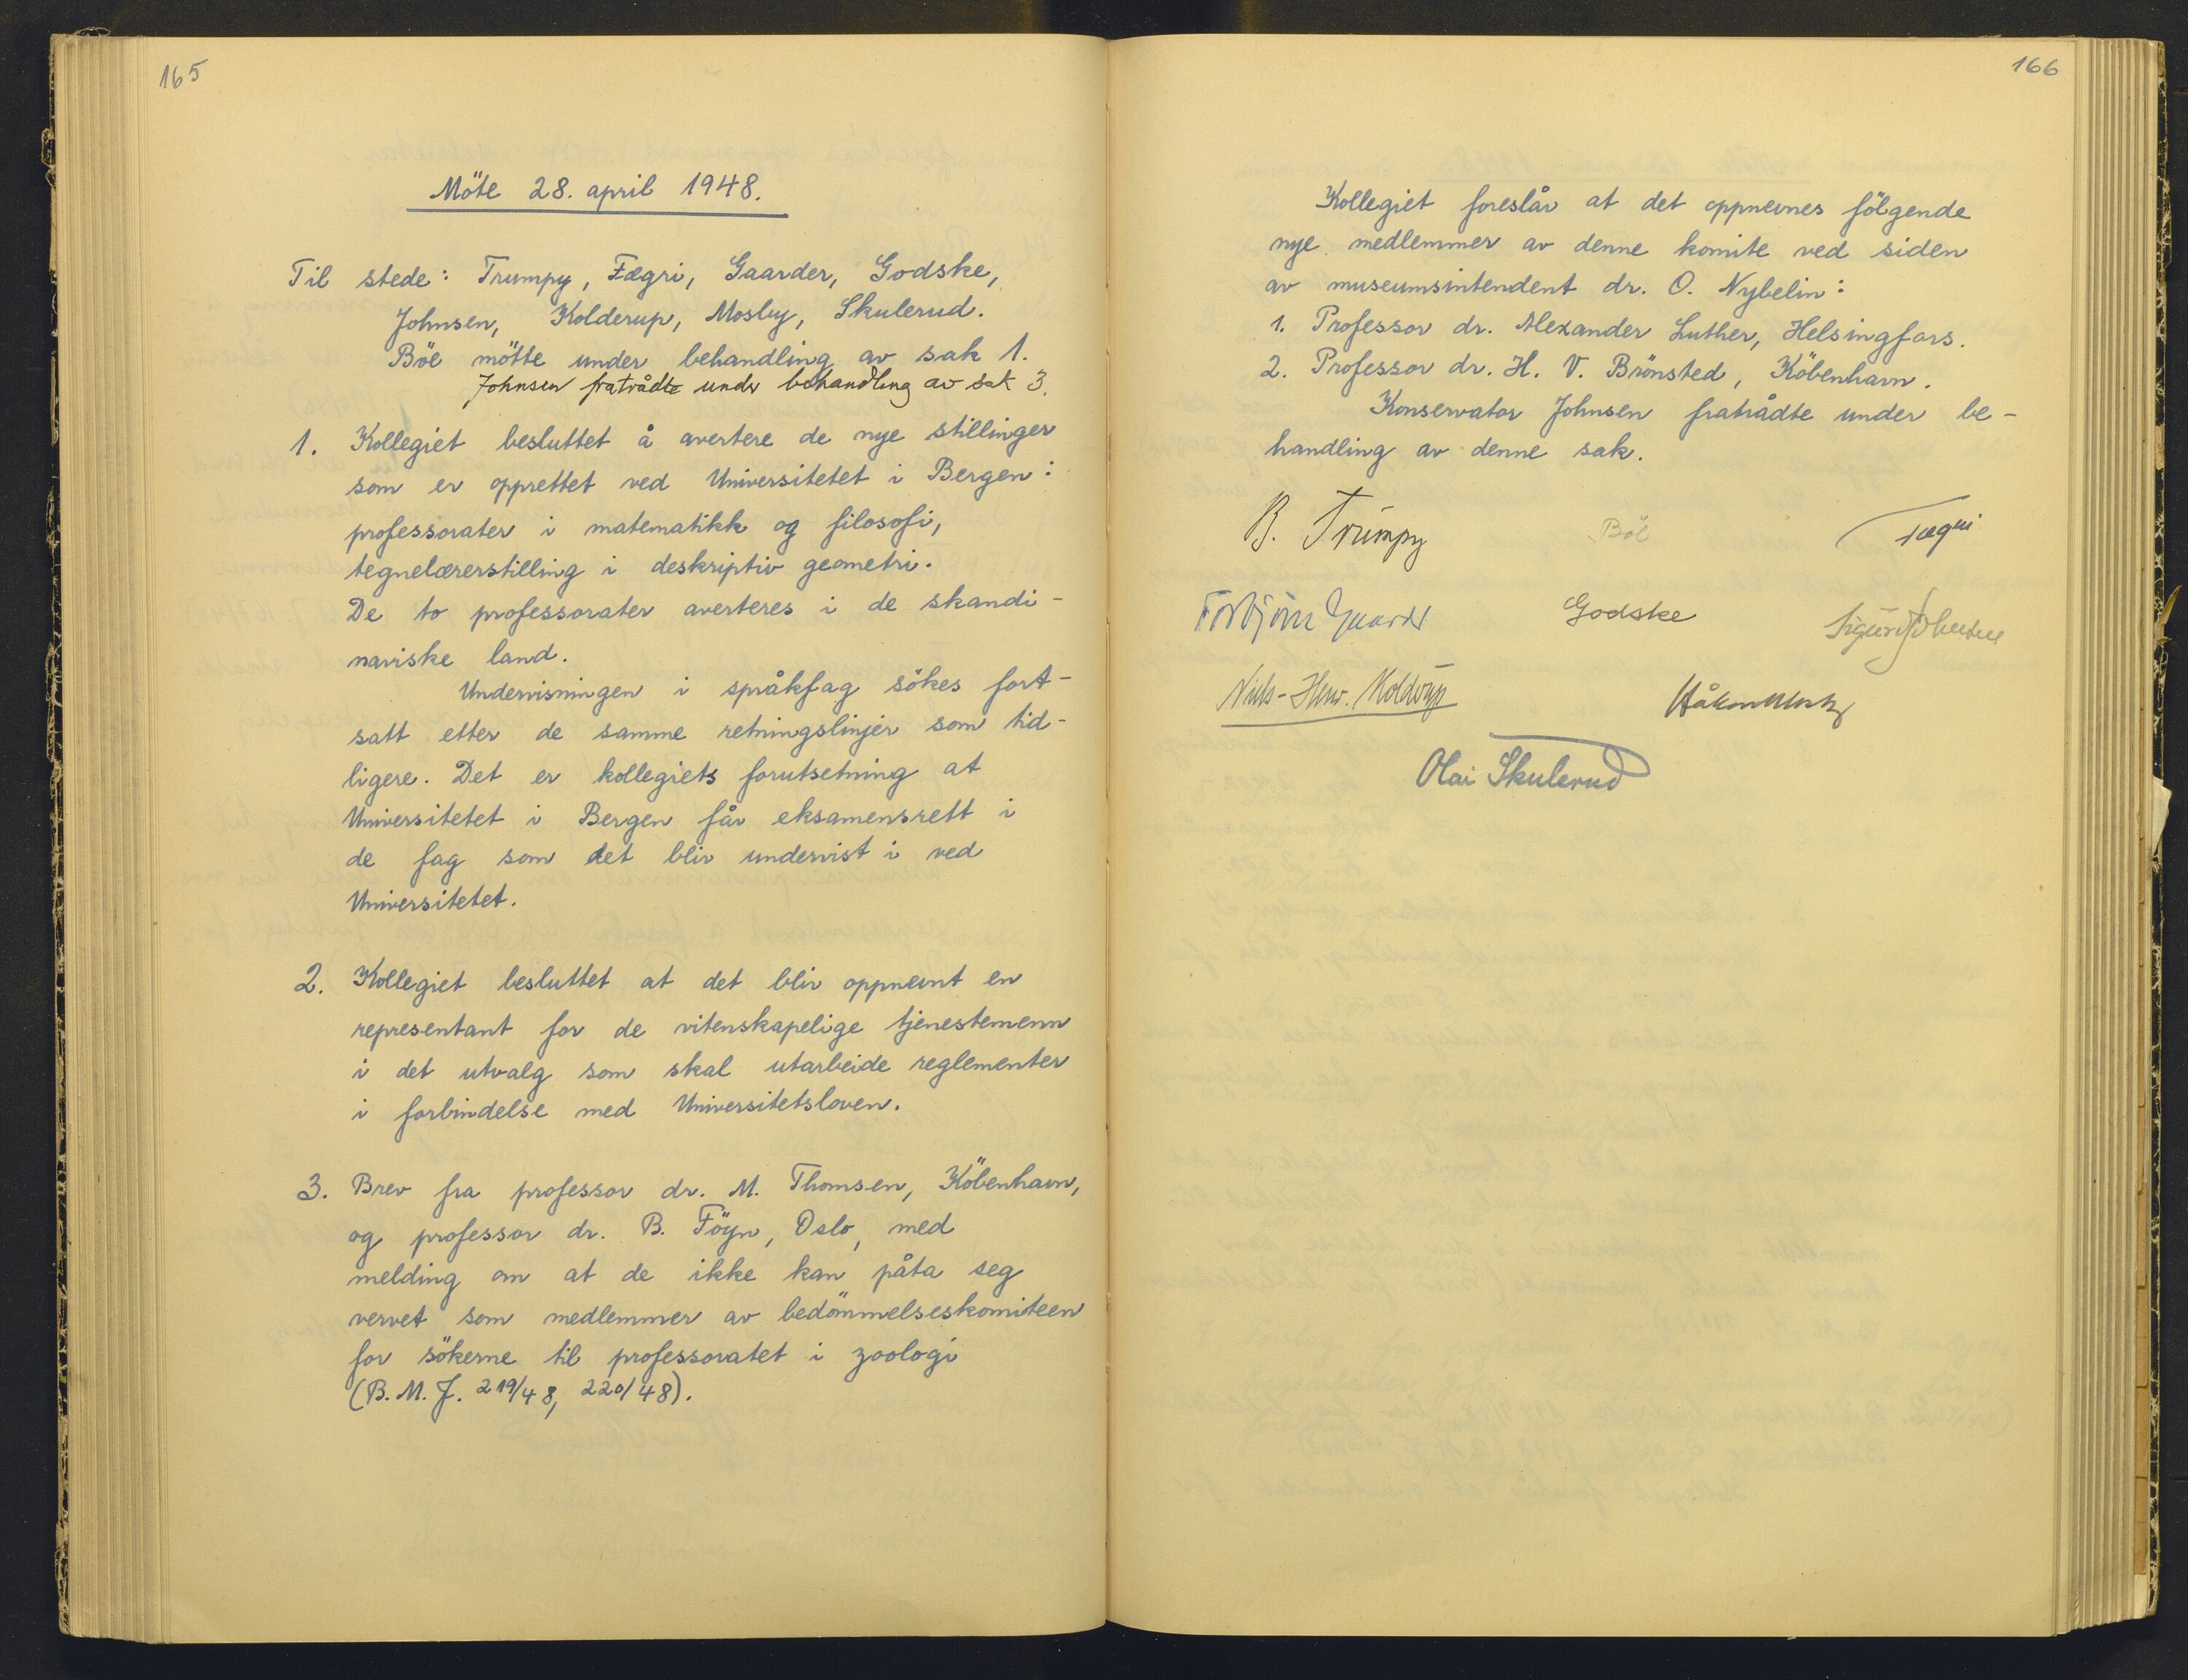 165
Möte 28. april 1948.
Til stede: Trumpy, Fægri, Gaarder, Godske,
Johnsen, Kolderup, Mosby, Skulerud.
Böe mötte under behandling av sak 1.
Johnsen fratrådte under behandling av sak 3.
1. Kollegiet besluttet å avertere de nye stillinger
som er opprettet ved Universitetet i Bergen:
professorater i matematikk og filosofi,
tegnelærerstilling i deskriptiv geometri.
De to professorater averteres i de skandi-
naviske land.
Undervisningen i språkfag sökes fort-
satt etter de samme retningslinjer som tid-
ligere. Det er kollegiets forutsetning at
Universitetet i Bergen får eksamensrett i
de fag som det blir undervist i ved
Universitetet.
2. Kollegiet besluttet at det blir oppnevnt en
representant for de vitenskapelige tjenestemenn
i det utvalg som skal utarbeide reglementer
i forbindelse med Universitetsloven.
3. Brev fra professor dr. M. Thomsen, Köbenhavn,
og professor dr. B. Föyn, Oslo, med
melding om at de ikke kan påta seg
vervet som medlemmer av bedömmelseskomiteen
for sökerne til professoratet i zoologi
(B. M. J. 219/48, 220/48).
166
Kollegiet foreslår at det oppnevnes fölgende
nye medlemmer av denne komite ved siden
av museumsintendent dr. O. Nybelin:
1. Professor dr. Alexander Luther, Helsingfors.
2. Professor dr. H. V. Brönsted, Köbenhavn.
Konservator Johnsen fratrådte under be-
handling av denne sak.
B. Trumpy Böe Fægri
Torbjörn Gaarder Godske Sigurd Johnsen
Niels-Henr. Kolderup Håkon Mosby
Olai Skulerud